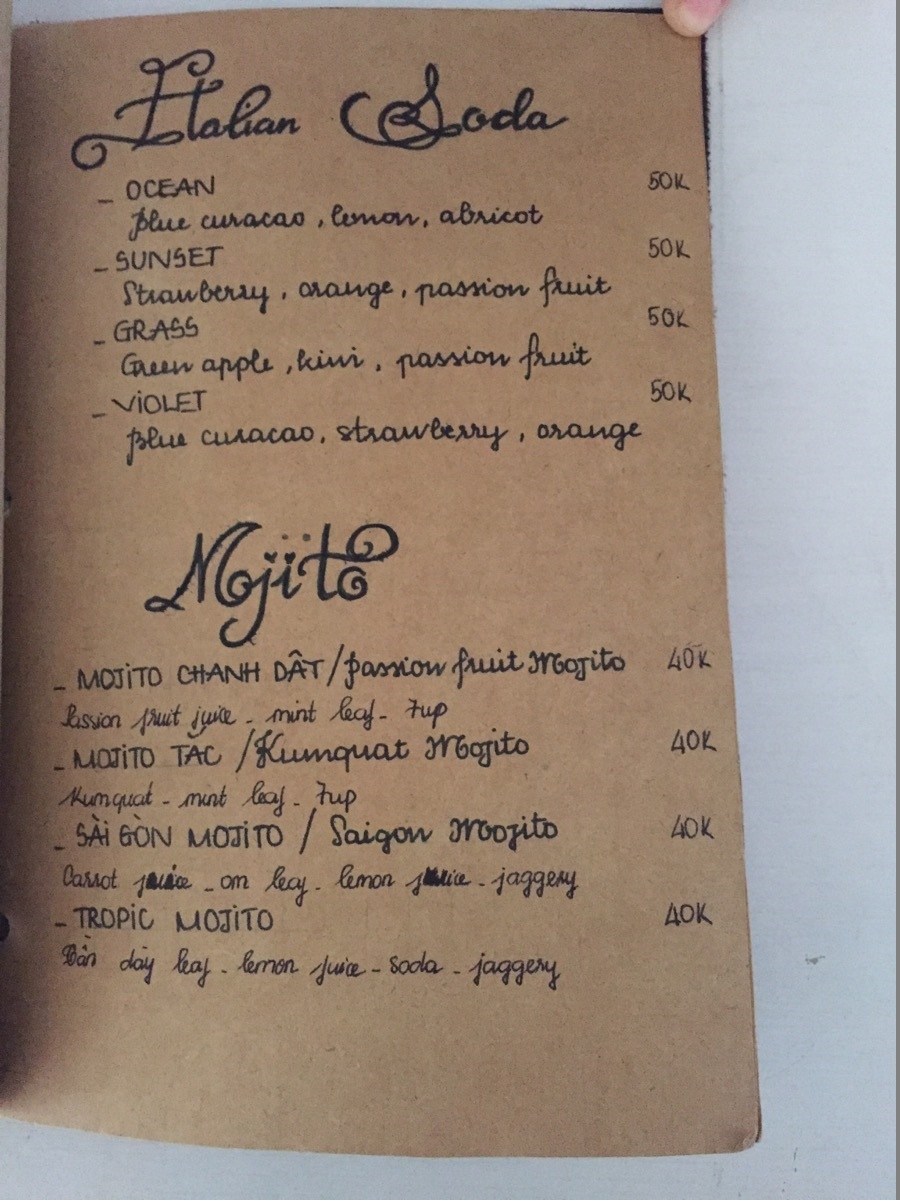 Italian Soda
_ OCEAN 50K
Blue curacao, lemon, abricot
_ SUNSET 50K
Strawberry, orange, passion fruit
_ GRASS 50K
Green apple, kiwi, passion fruit
_ VIOLET 50K
Blue curacao, strawberry, orange
Mojito
_ MOJITO CHANH DẬT/passion fruit Mojito 40K
Passion fruit juice - mint leaf - 7up
_ MOJITO TẮC / Kumquat Mojito 40K
Kumquat - mint leaf - 7up
_ SÀI GÒN MOJITO / Saigon Mojito 40K
Carrot juice - om leaf - lemon juice - jaggery
_ TROPIC MOJITO 40K
dày leaf - lemon juice - soda - jaggery